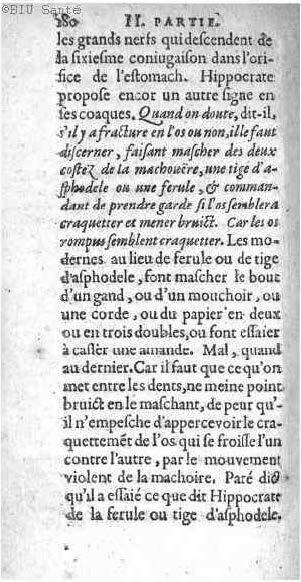 ©BIU Santé
280 II. PARTIE.
les grands nerfs qui descendent de
la sixiesme coniugaison dans l'ori-
fice de l'estomach. Hippocrate
propose encor un autre signe en
ses coaques. Quand on doute, dit-il,
s'il y a fracture en l'os ou non, il le faut
discerner, faisant mascher des deux
costez de la machouëre, une tige d'a-
sphodele ou une ferule, & comman-
dant de prendre garde si l'os semblera
craquetter et mener bruict. Car les os
rompus semblent craquetter. Les mo-
dernes au lieu de ferule ou de tige
d'asphodele, font mascher le bout
d'un gand, ou d'un mouchoir, ou
une corde, ou du papier en deux
ou en trois doubles, ou font essaier
à casser une amande. Mal, quand
au dernier. Car il faut que ce qu'on
met entre les dents, ne meine point
bruict en le maschant, de peur qu'-
il n'empesche d'appercevoir le cra-
quettemēt de l'os qui se froisse l'un
contre l'autre, par le mouvement
violent de la machoire. Paré dit
qu'il a essaié ce que dit Hippocrate
de la ferule ou tige d'asphodele.